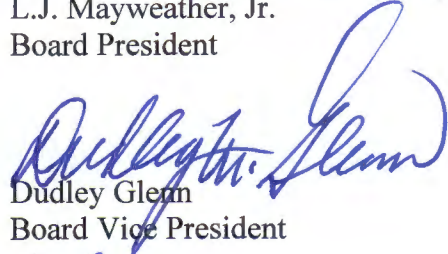 L.J. Mayweather, Jr.
Board President
Dudley M. Glenn
Dudley Glenn
Board Vice President